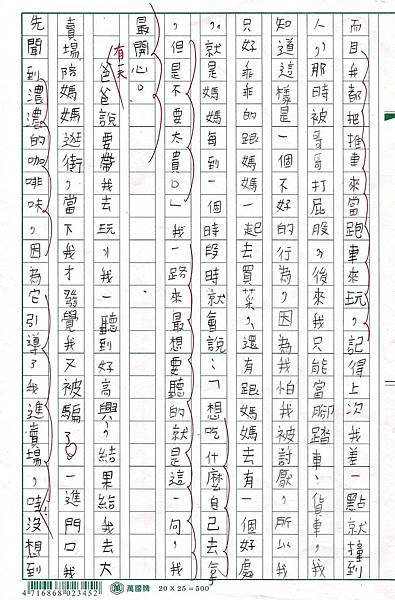 而且我都把推車來當跑車來玩，記得上次我差一點就撞到
人，那時被哥哥打屁股，後來我只能當腳踏車、貨車，我
知道這樣是一個不好的行為，因為我怕我被討厭，所以我
只好乖乖的跟媽媽一起去買菜，還有跟媽媽去有一個好處
，就是媽媽每到一個時段時就會說：「想吃什麼自己去拿
，但是不要太貴。」我一路來最想要聽的就是這一句，我
最開心。
有一天爸爸說要帶我去玩，我一聽到好高興，結果給我去大
賣場陪媽媽逛街，當下我才發覺我又被騙了。一進門口我
先聞到濃濃的咖啡味，因為它引導了我進賣場，哇！沒想到
4 716868 023452
萬國牌 20 X 25 = 500